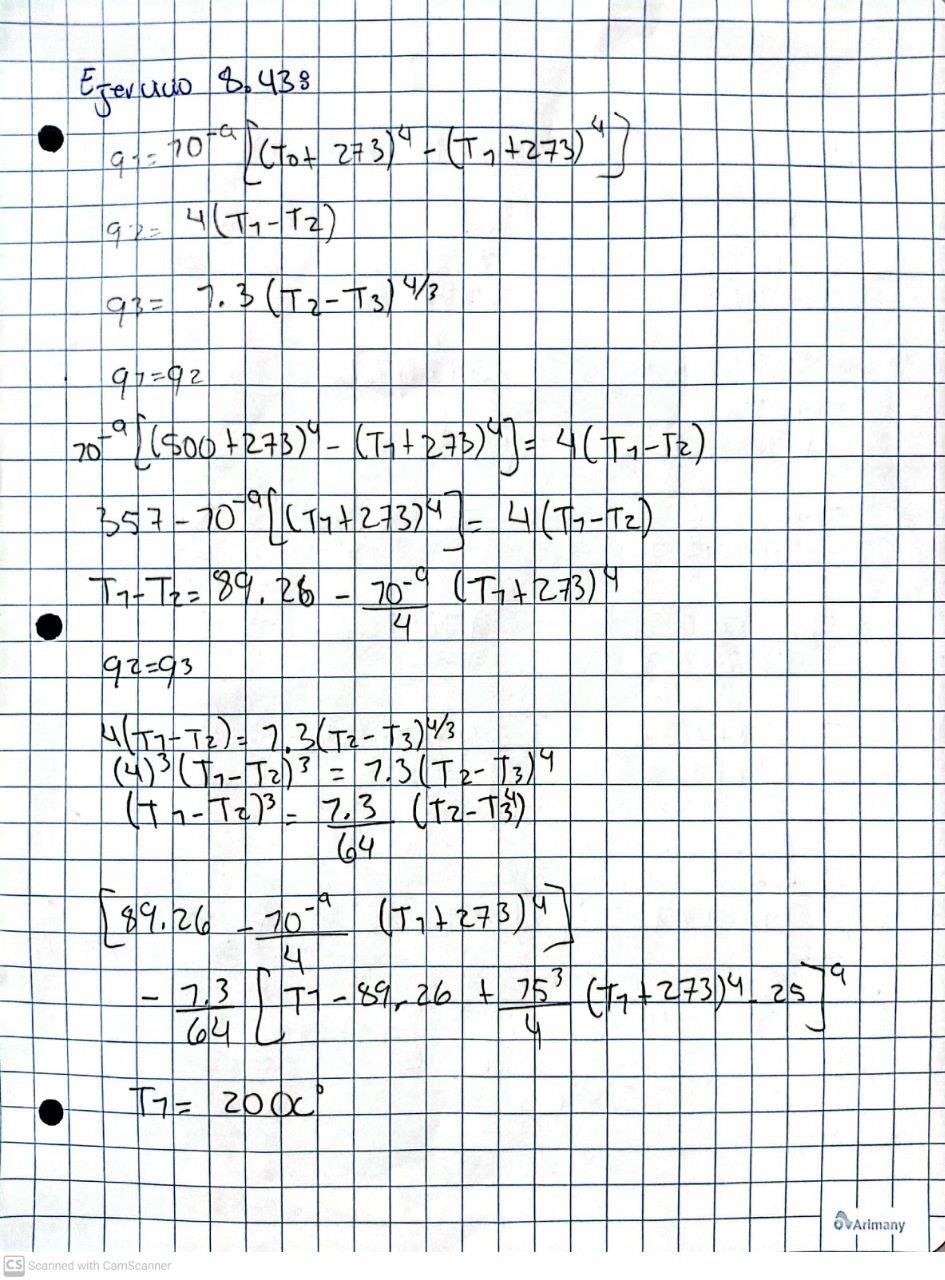 Ejercicio 8.43:
q1= 10^-9 [(T0+ 273)^4 - (T1+273)^4]
q2= 4(T1-T2)
q3= 1.3 (T2-T3)^4/3
q1=q2
10^-9 [(500+273)^4 - (T1+273)^4] = 4(T1-T2)
357 - 10^-9 [(T1+273)^4] = 4(T1-T2)
T1-T2= 89.26 - 10^-9/4 (T1+273)^4
q2=q3
4(T1-T2)= 1.3(T2-T3)^4/3
(4)^3 (T1-T2)^3 = 1.3(T2-T3)^4
(T1-T2)^3 = 1.3/64 (T2-T3^4)
[89.26 - 10^-9/4 (T1+273)^4]
- 1.3/64 [T1 - 89.26 + 15^3/4 (T1+273)^4 - 25]^9
T1= 200C°
Arimany
CS Scanned with CamScanner